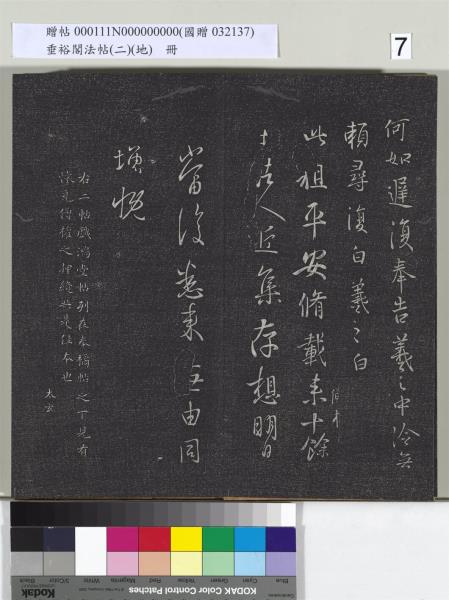 贈帖 000111N000000000(國贈 032137)
垂裕閣法帖(二)(地) 冊
7
何如遲復奉告羲之中冷無
賴尋復白羲之白
此粗平安脩載來十餘
脩載
日諸人近集存想明日
當復悉來無由同
增慨
右二帖戲鴻堂帖列在奉橘帖之下見有
隋先僧權之押縫
是佳本也
太玄
Blue
Cyan
Green
Yellow
Red
Magenta
White
3/Color
Black
Kodak
KODAK Color Control Patches